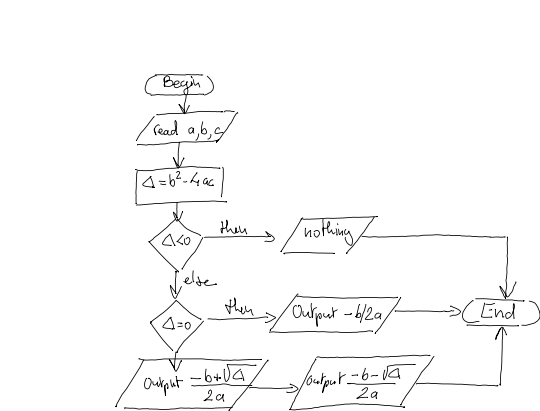 Begin
read a,b,c
Δ=b²-4ac
Δ<0
then
nothing
else
Δ=0
then
Output -b/2a
End
Output =b+√Δ/2a
Output -b-√Δ/2a